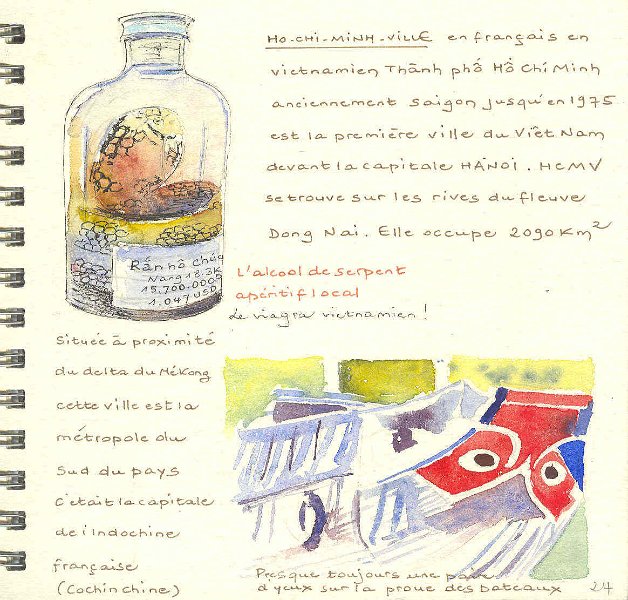 HO-CHI-MINH-VILLE en français en
vietnamien Thành phố Hồ Chí Minh
anciennement Saigon jusqu'en 1975
est la première ville du Viêt Nam
devant la capitale HÀNOI. HCMV
se trouve sur les rives du fleuve
Dong Nai. Elle occupe 2090 Km²
Rắn hổ chúa
Nặng 18.3K
19.700.000Đ
1.047 USD
L'alcool de serpent
apéritif local
Le viagra vietnamien !
Située à proximité
du delta du Mékong
cette ville est la
métropole du
Sud du pays
C'était la capitale
de l'Indochine
française
(Cochinchine)
Presque toujours une paire
d'yeux sur la proue des bateaux
24